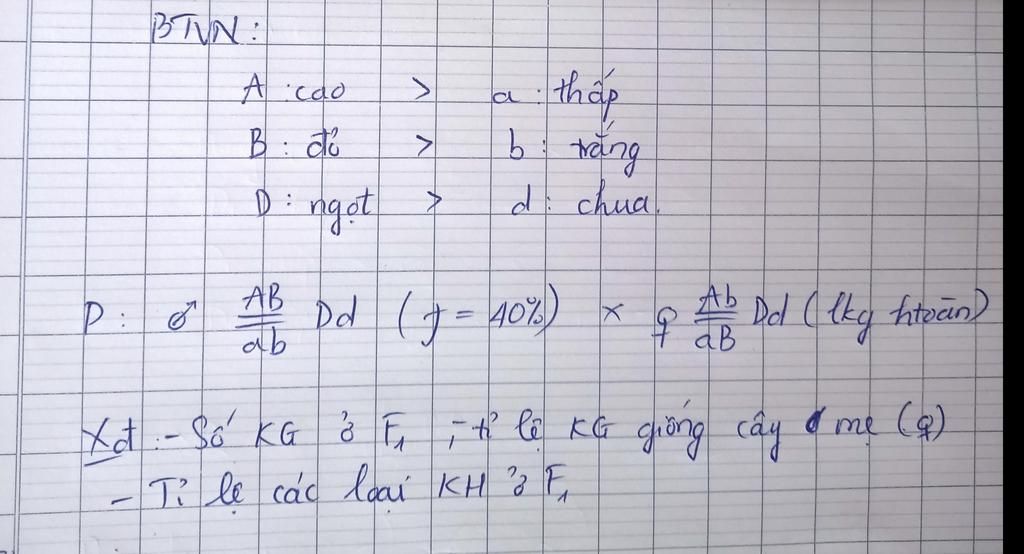 BTVN:
A : cao > a : thấp
B : đỏ > b : trắng
D : ngọt > d : chua.
P : ♂ AB/ab Dd (f = 40%) × ♀ Ab/aB Dd (lkg htoàn)
Xđ : - Số KG ở F₁ ; - tỉ lệ KG giống cây mẹ (♀)
- Tỉ lệ các loại KH ở F₁